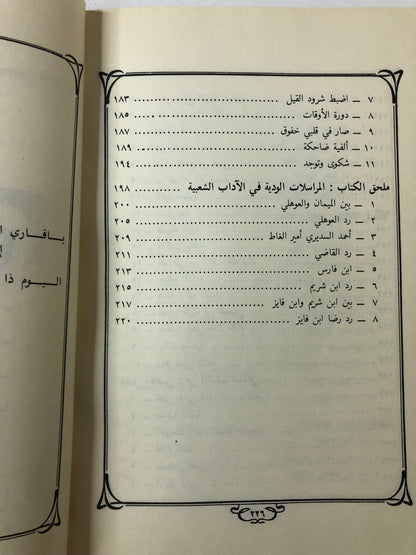 ٧ ــ اضبط شرود القيل ........ ١٨٣
٨ ــ دورة الأوقات ........ ١٨٥
٩ ــ صار في قلبي خفوق ........ ١٨٧
١٠ ــ ألفية ضاحكة ........ ١٨٩
١١ ــ شكوى وتوجد ........ ١٩٤
ملحق الكتاب : المراسلات الودية في الآداب الشعبية ........ ١٩٨
١ ــ بين الميمان والعوهلي ........ ٢٠٠
٢ ــ رد العوهلي ........ ٢٠٥
٣ ــ أحمد السديري أمير الغاط ........ ٢٠٩
٤ ــ رد القاضي ........ ٢١١
٥ ــ ابن فارس ........ ٢١٣
٦ ــ رد ابن شريم ........ ٢١٥
٧ ــ بين ابن شريم وابن فايز ........ ٢١٧
٨ ــ رد رضا ابن فايز ........ ٢٢٠
٢٢٦
ياقاري
اليوم ذا